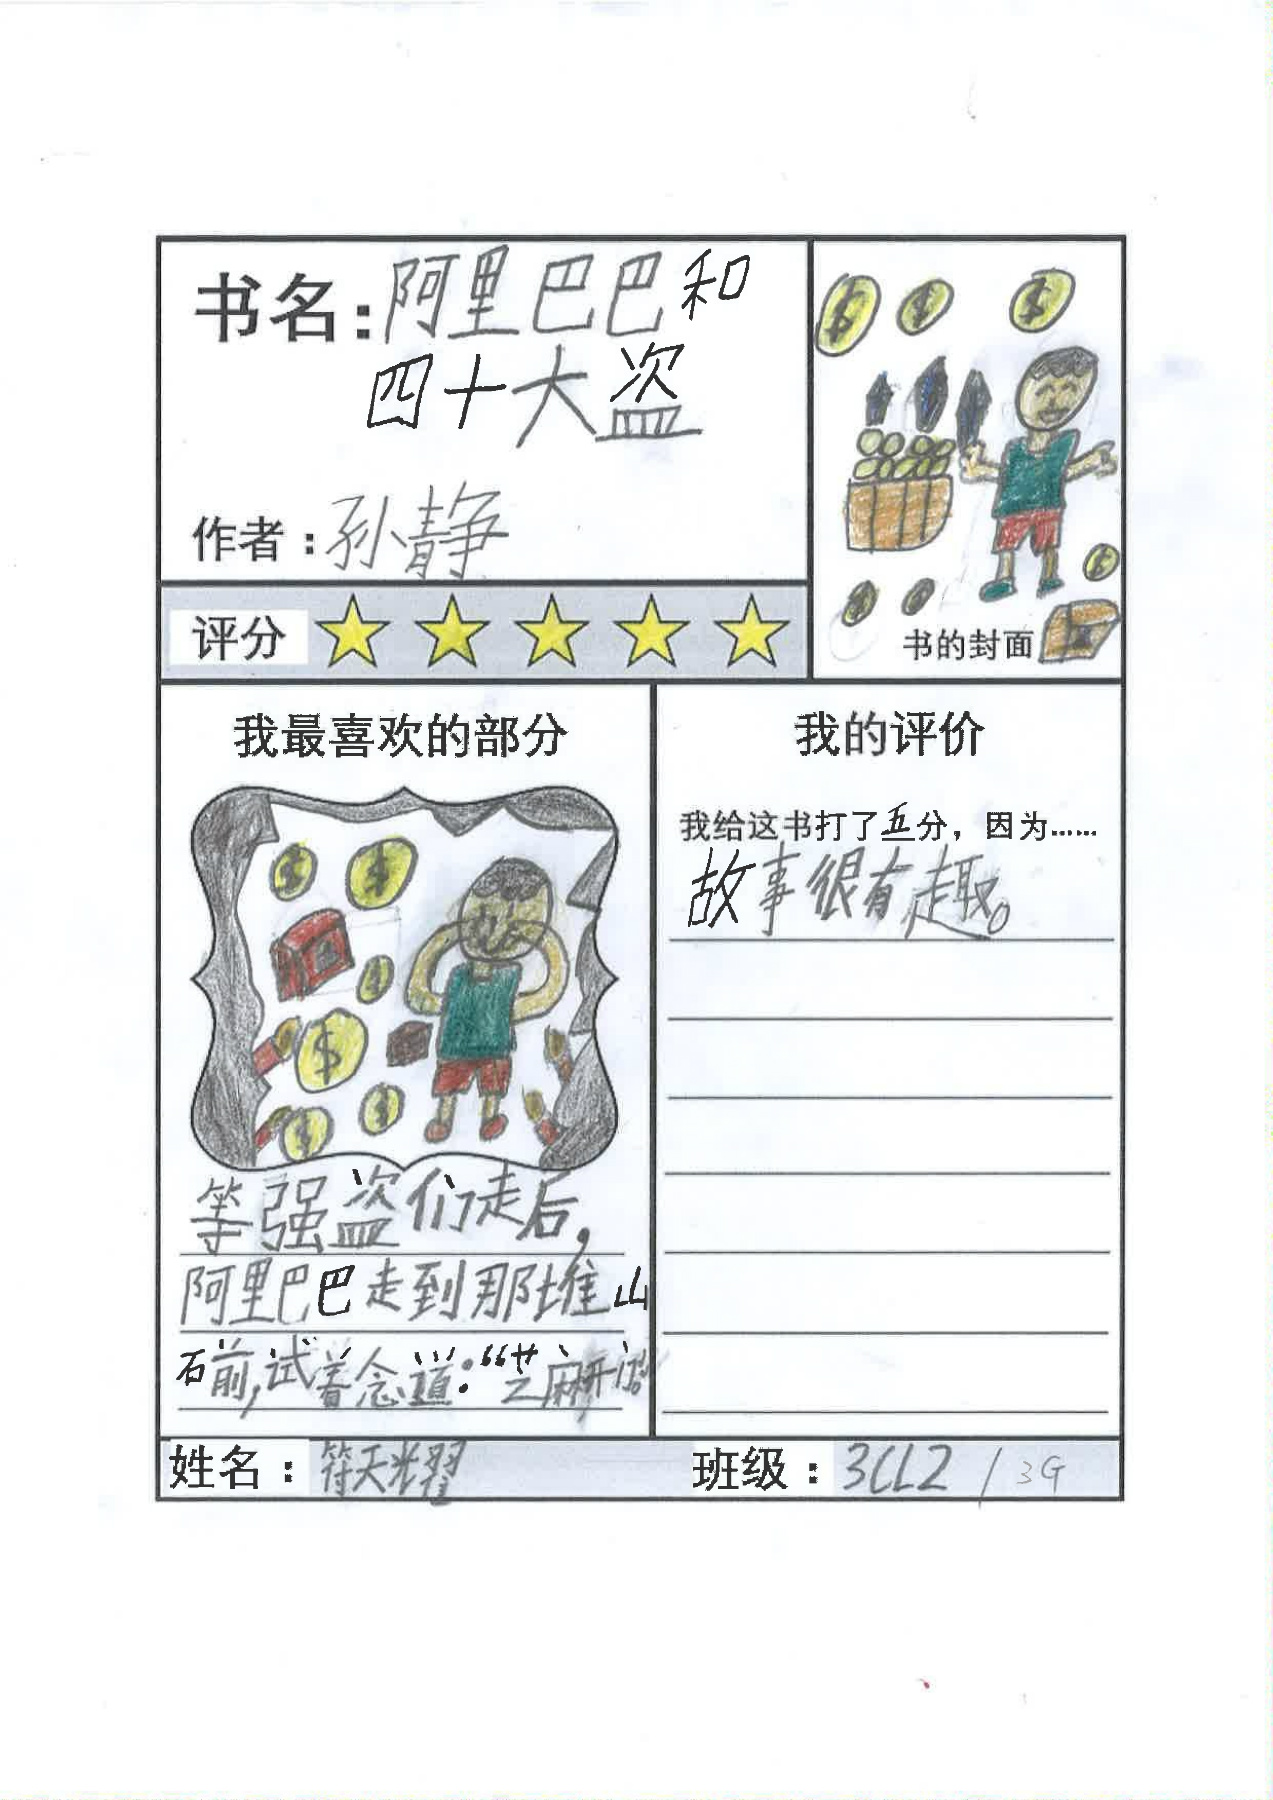 书名：阿里巴巴和
四十大盗
作者：孙静
评分
书的封面
我最喜欢的部分
等强盗们走后，
阿里巴巴走到那堆山
石前，试着念道：“芝麻开门
我的评价
我给这书打了五分，因为……
故事很有趣。
姓名：符天耀
班级：3CL2 / 3G
$
$
$
$
$
$
$
$
$